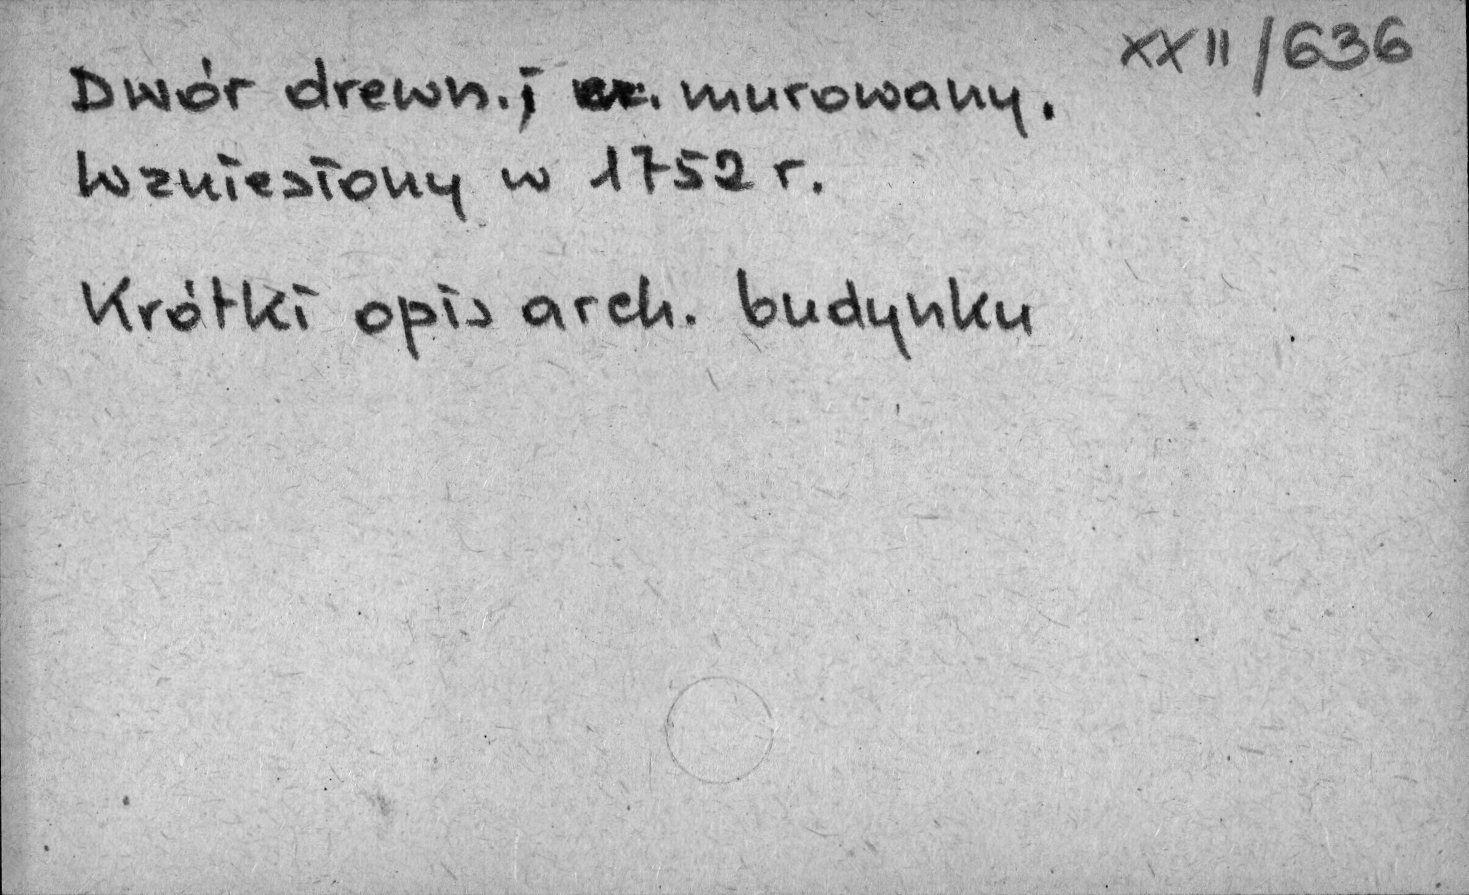 XXII/636
Dwór drewn.; murowany.
Wzniesiony w 1752 r.
Krótki opis arch. budynku